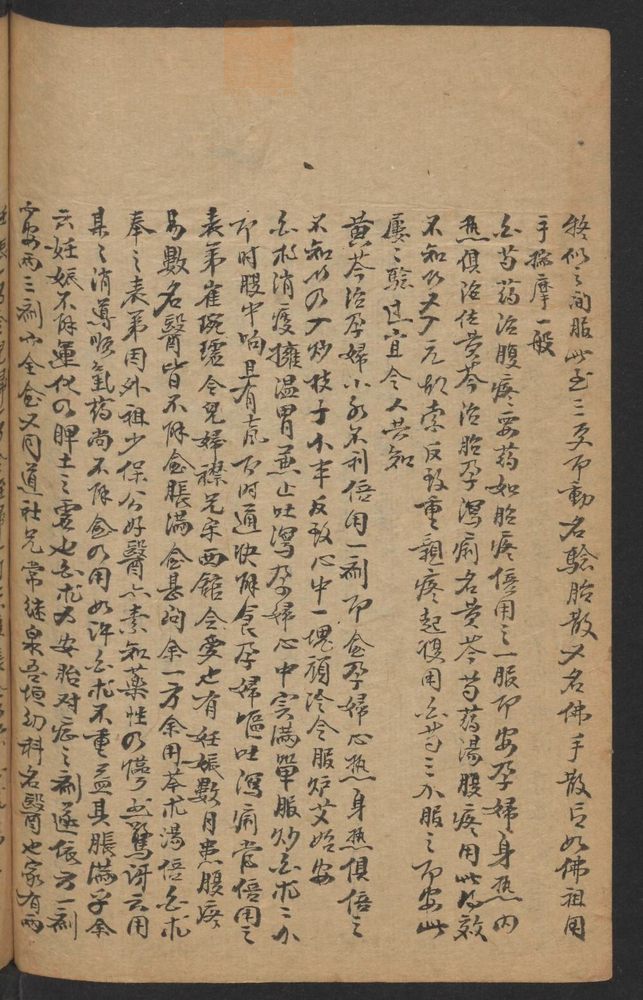 疑似之間服此至三更即動名驗胎散又名佛手散言如佛祖用
手揣摩一般
白芍藥治腹疼要藥如胎疼倍用之一服即安孕婦身熱內
熱俱治佐黃芩治胎孕瀉痢名黃芩芍藥湯腹疼用此為效
不知以又入元胡索反致重親疼起複用白芍三小服之即安此
屢之驗過宜令人共知
黃芩治孕婦小水不利倍用一劑即愈孕婦心熱身熱俱倍之
不知以乃入炒枝子小半反致心中一塊頑冷令服炒艾始安
白朮消痰擁溫胃蒸止吐瀉孕婦心中實滿單服炒白朮二小
即時腹中响且有氣下時通快解食孕婦嘔吐瀉痢常倍用之
表弟崔琬瓊令兒婦襟兄宋西館令愛也有妊娠數月患腹疼
易數名醫皆不解愈脹滿愈甚問余一方余用苓朮湯倍白朮
奉之表弟因外祖少保公好醫亦素知藥性乃愕之驚訝云用
某之消導順氣藥尚不解愈乃用如許白朮不重益其脹滿乎余
云妊娠不能運化乃脾土之虛也白朮為安胎對症之劑遂依方一劑
安兩三劑亦全愈又同道社兄常繼泉吾垣幼科名醫也家有兩